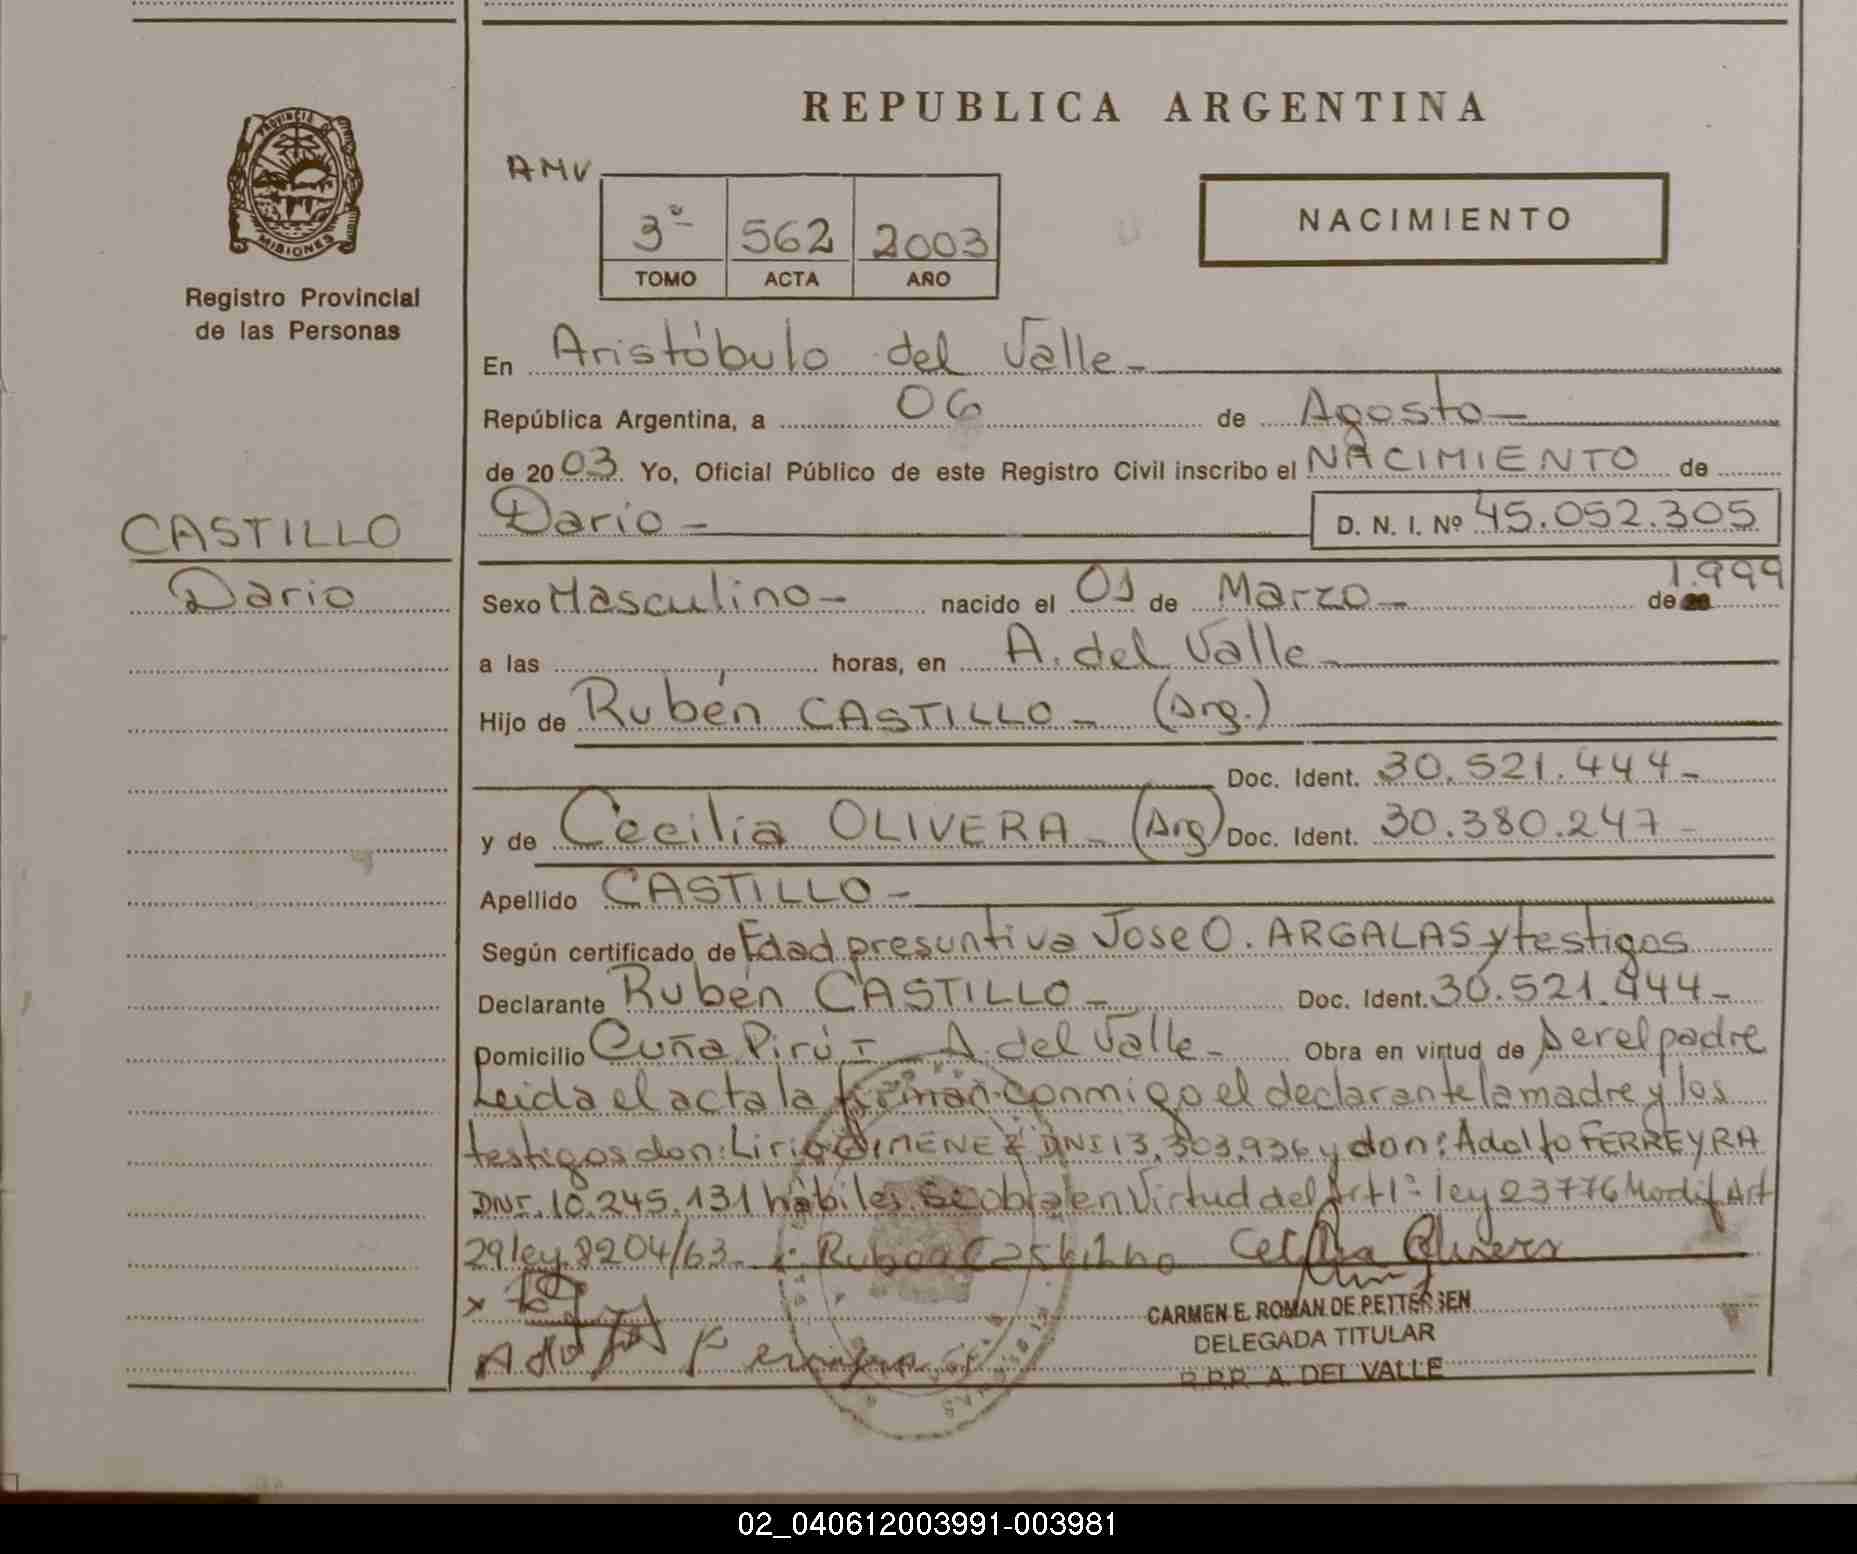 REPUBLICA ARGENTINA
PROVINCIA DE
MISIONES
Registro Provincial
de las Personas
AMV
3º 562 2003
TOMO ACTA AÑO
NACIMIENTO
En Aristóbulo del Valle
República Argentina, a 06 de Agosto
de 2003 Yo, Oficial Público de este Registro Civil inscribo el NACIMIENTO de
CASTILLO
Dario D. N. I. Nº 45.052.305
Dario
Sexo Masculino nacido el 01 de Marzo de 1.999
a las horas, en A. del Valle
Hijo de Rubén CASTILLO (Arg.)
Doc. Ident. 30.521.444
y de Cecilia OLIVERA (Arg) Doc. Ident. 30.380.247
Apellido CASTILLO
Según certificado de Edad presuntiva Jose O. ARGALAS y testigos
Declarante Rubén CASTILLO Doc. Ident. 30.521.444
Domicilio Cuña Pirú I A. del Valle Obra en virtud de ser el padre
Leida el acta la firman conmigo el declarante la madre y los
testigos don: Lirio GIMENEZ DNI 13.303.936 y don: Adolfo FERREYRA
DNI. 10.245.131 hábiles. Se obra en Virtud del Art 1º ley 23776 Modif Art
29 ley 8204/63.
CARMEN E. ROMAN DE PETTERSEN
DELEGADA TITULAR
R.P.P. A. DEL VALLE
02_040612003991-003981